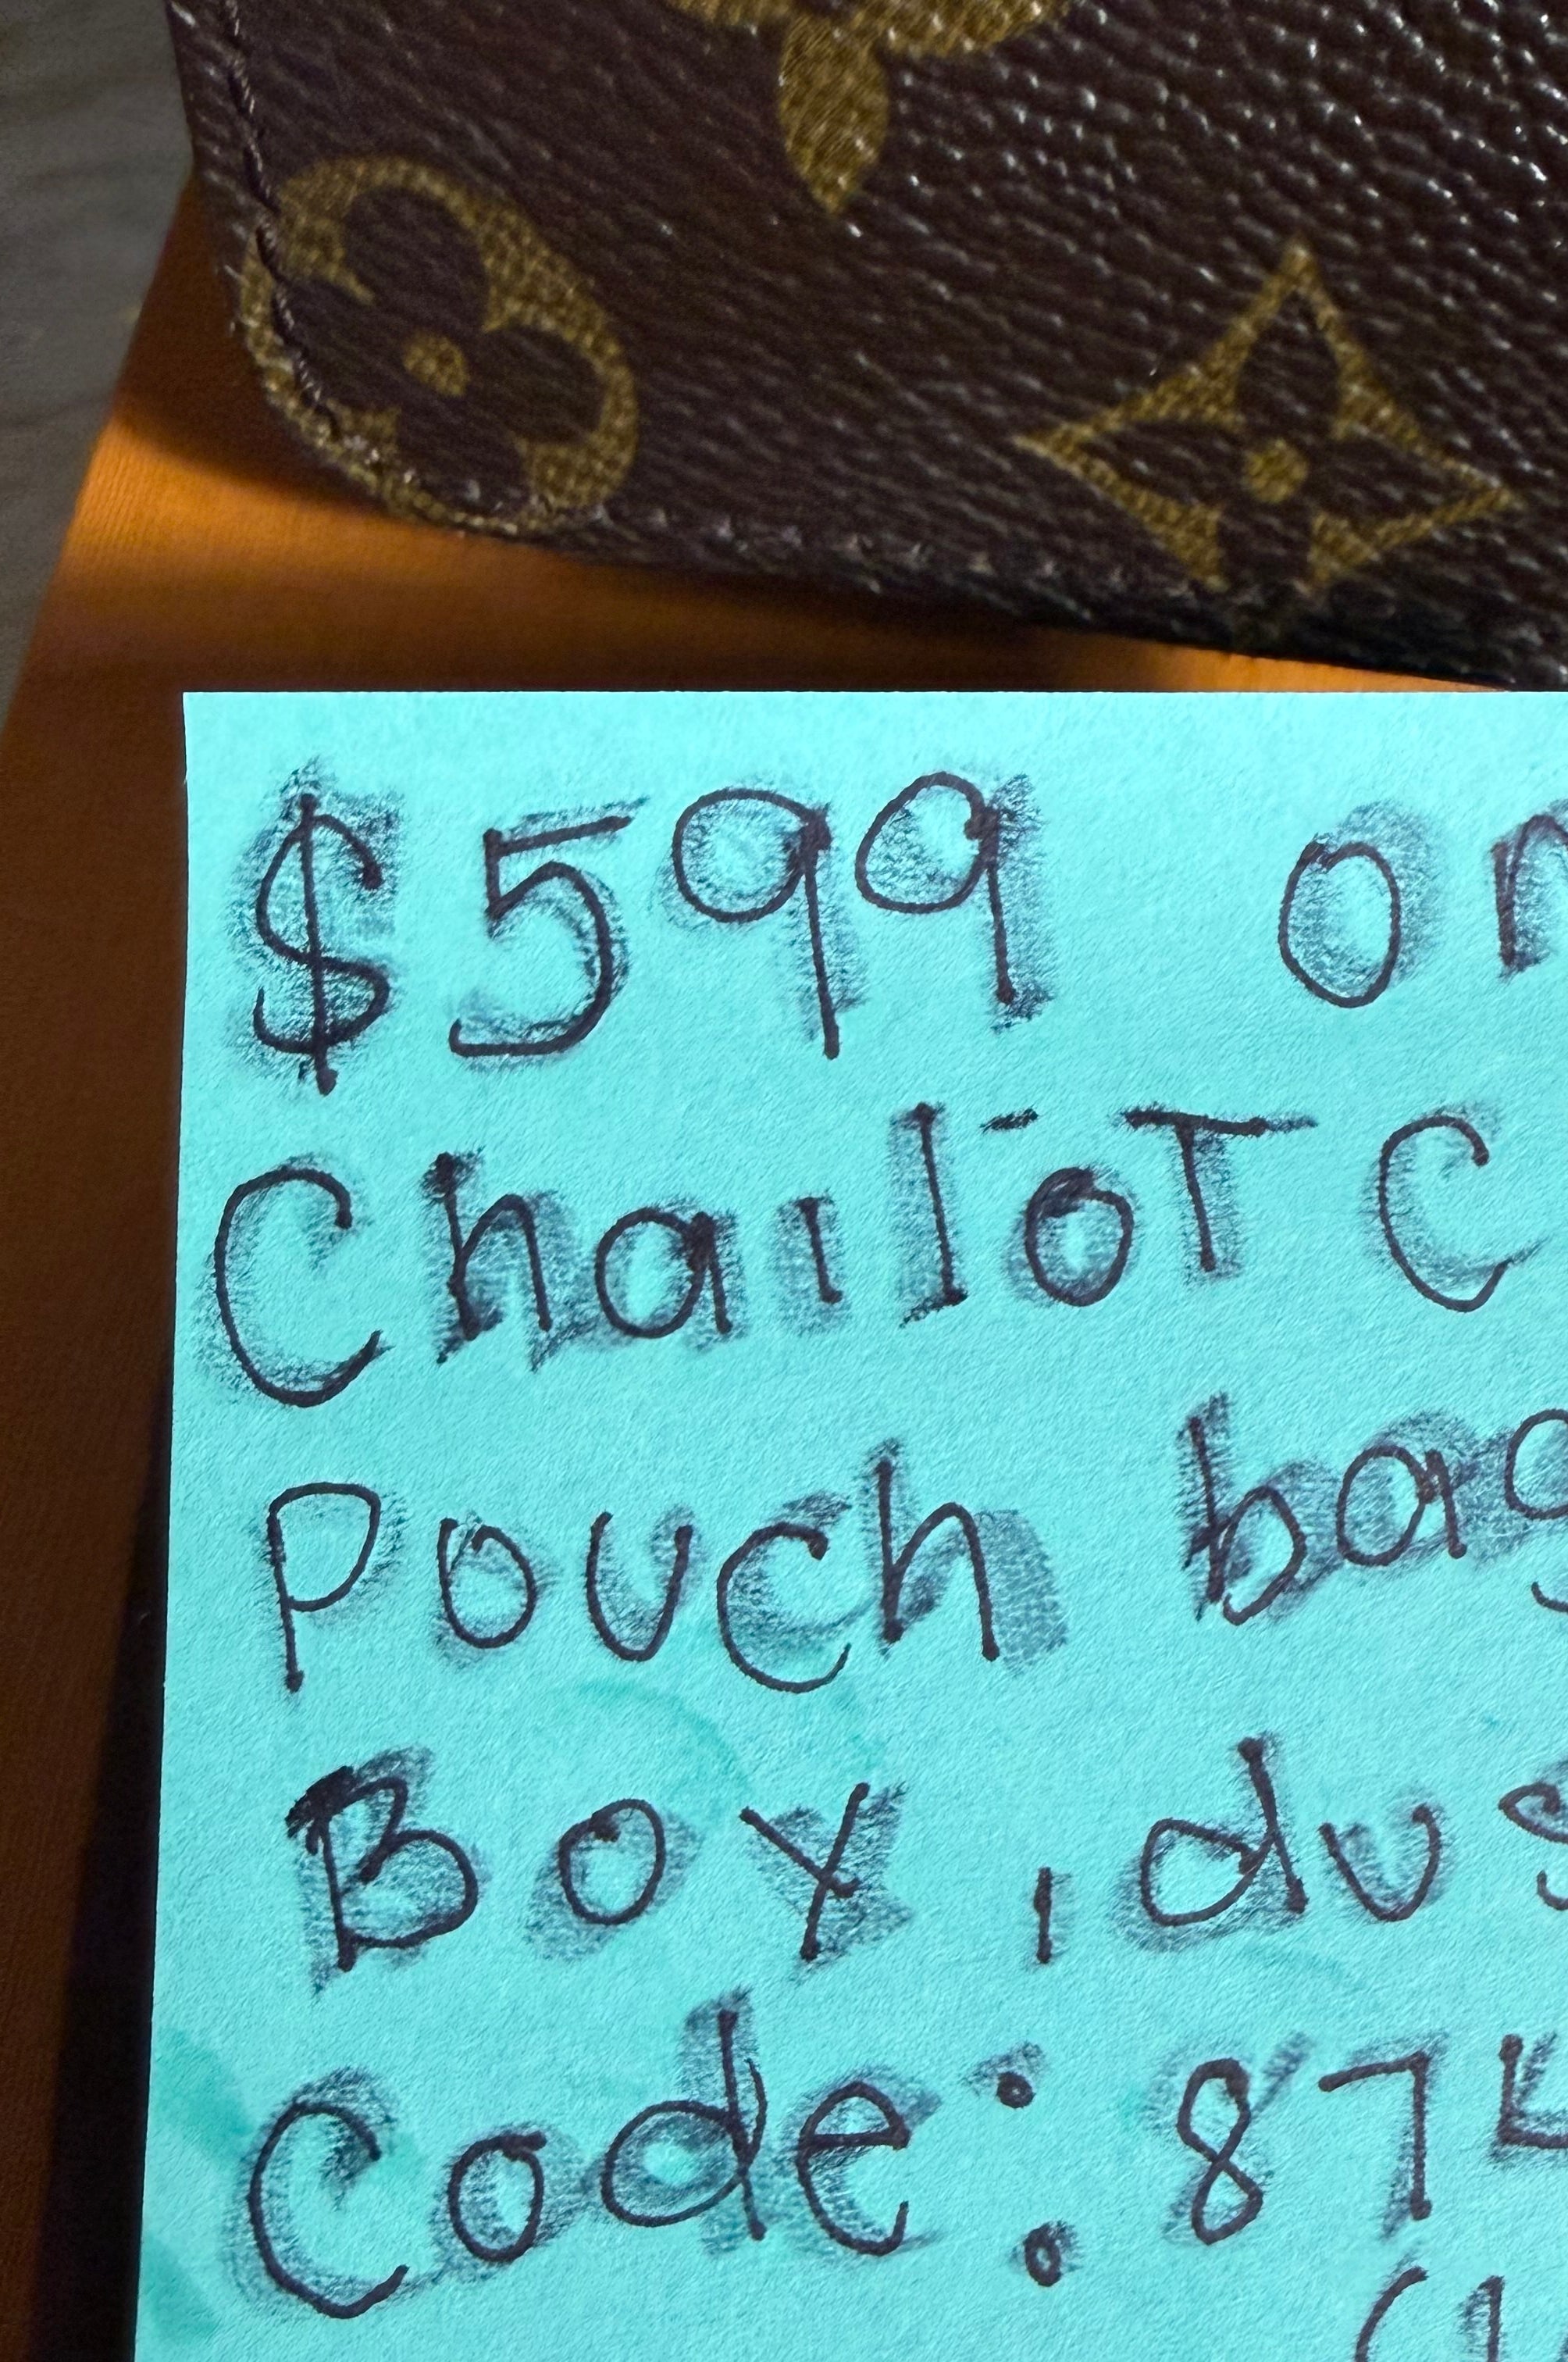 $599 on
Chailot C
Pouch bag
Box, dus
Code: 87